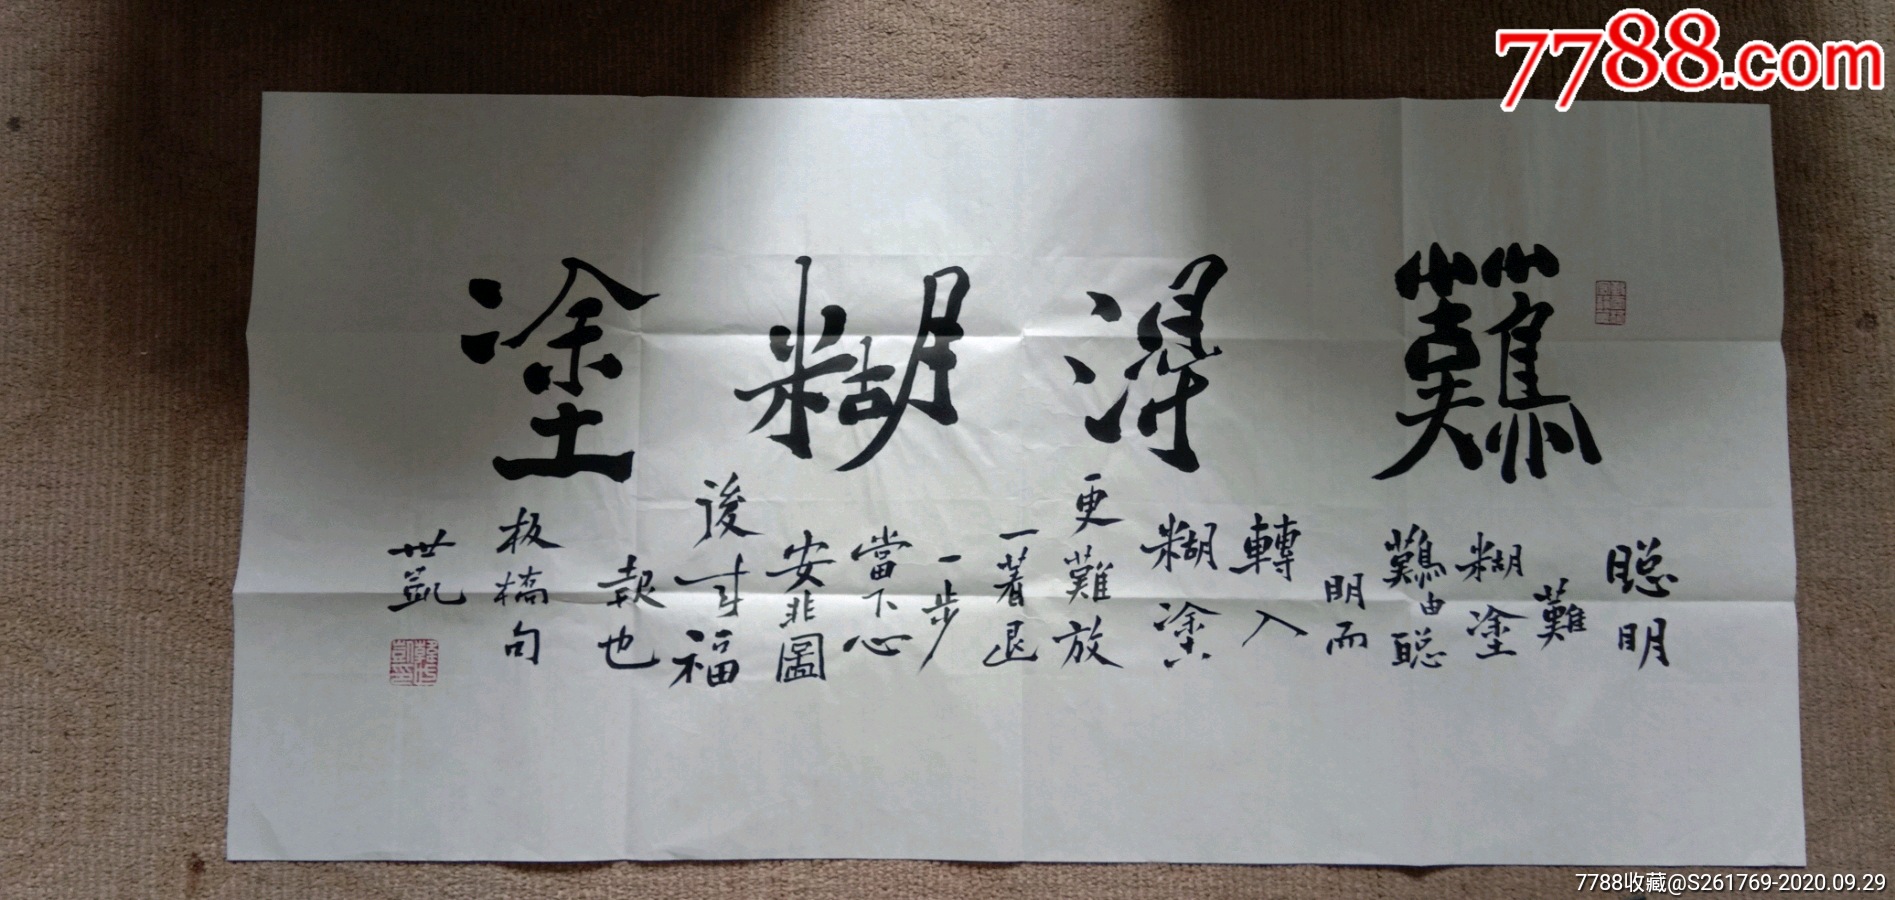 7788.com
難得糊塗
聪明
難
糊塗
難由聪
明而
轉入
糊塗
更難放
一著退
一步
當下心
安非圖
後来福
報也
板橋句
世凱
7788收藏@S261769-2020.09.29